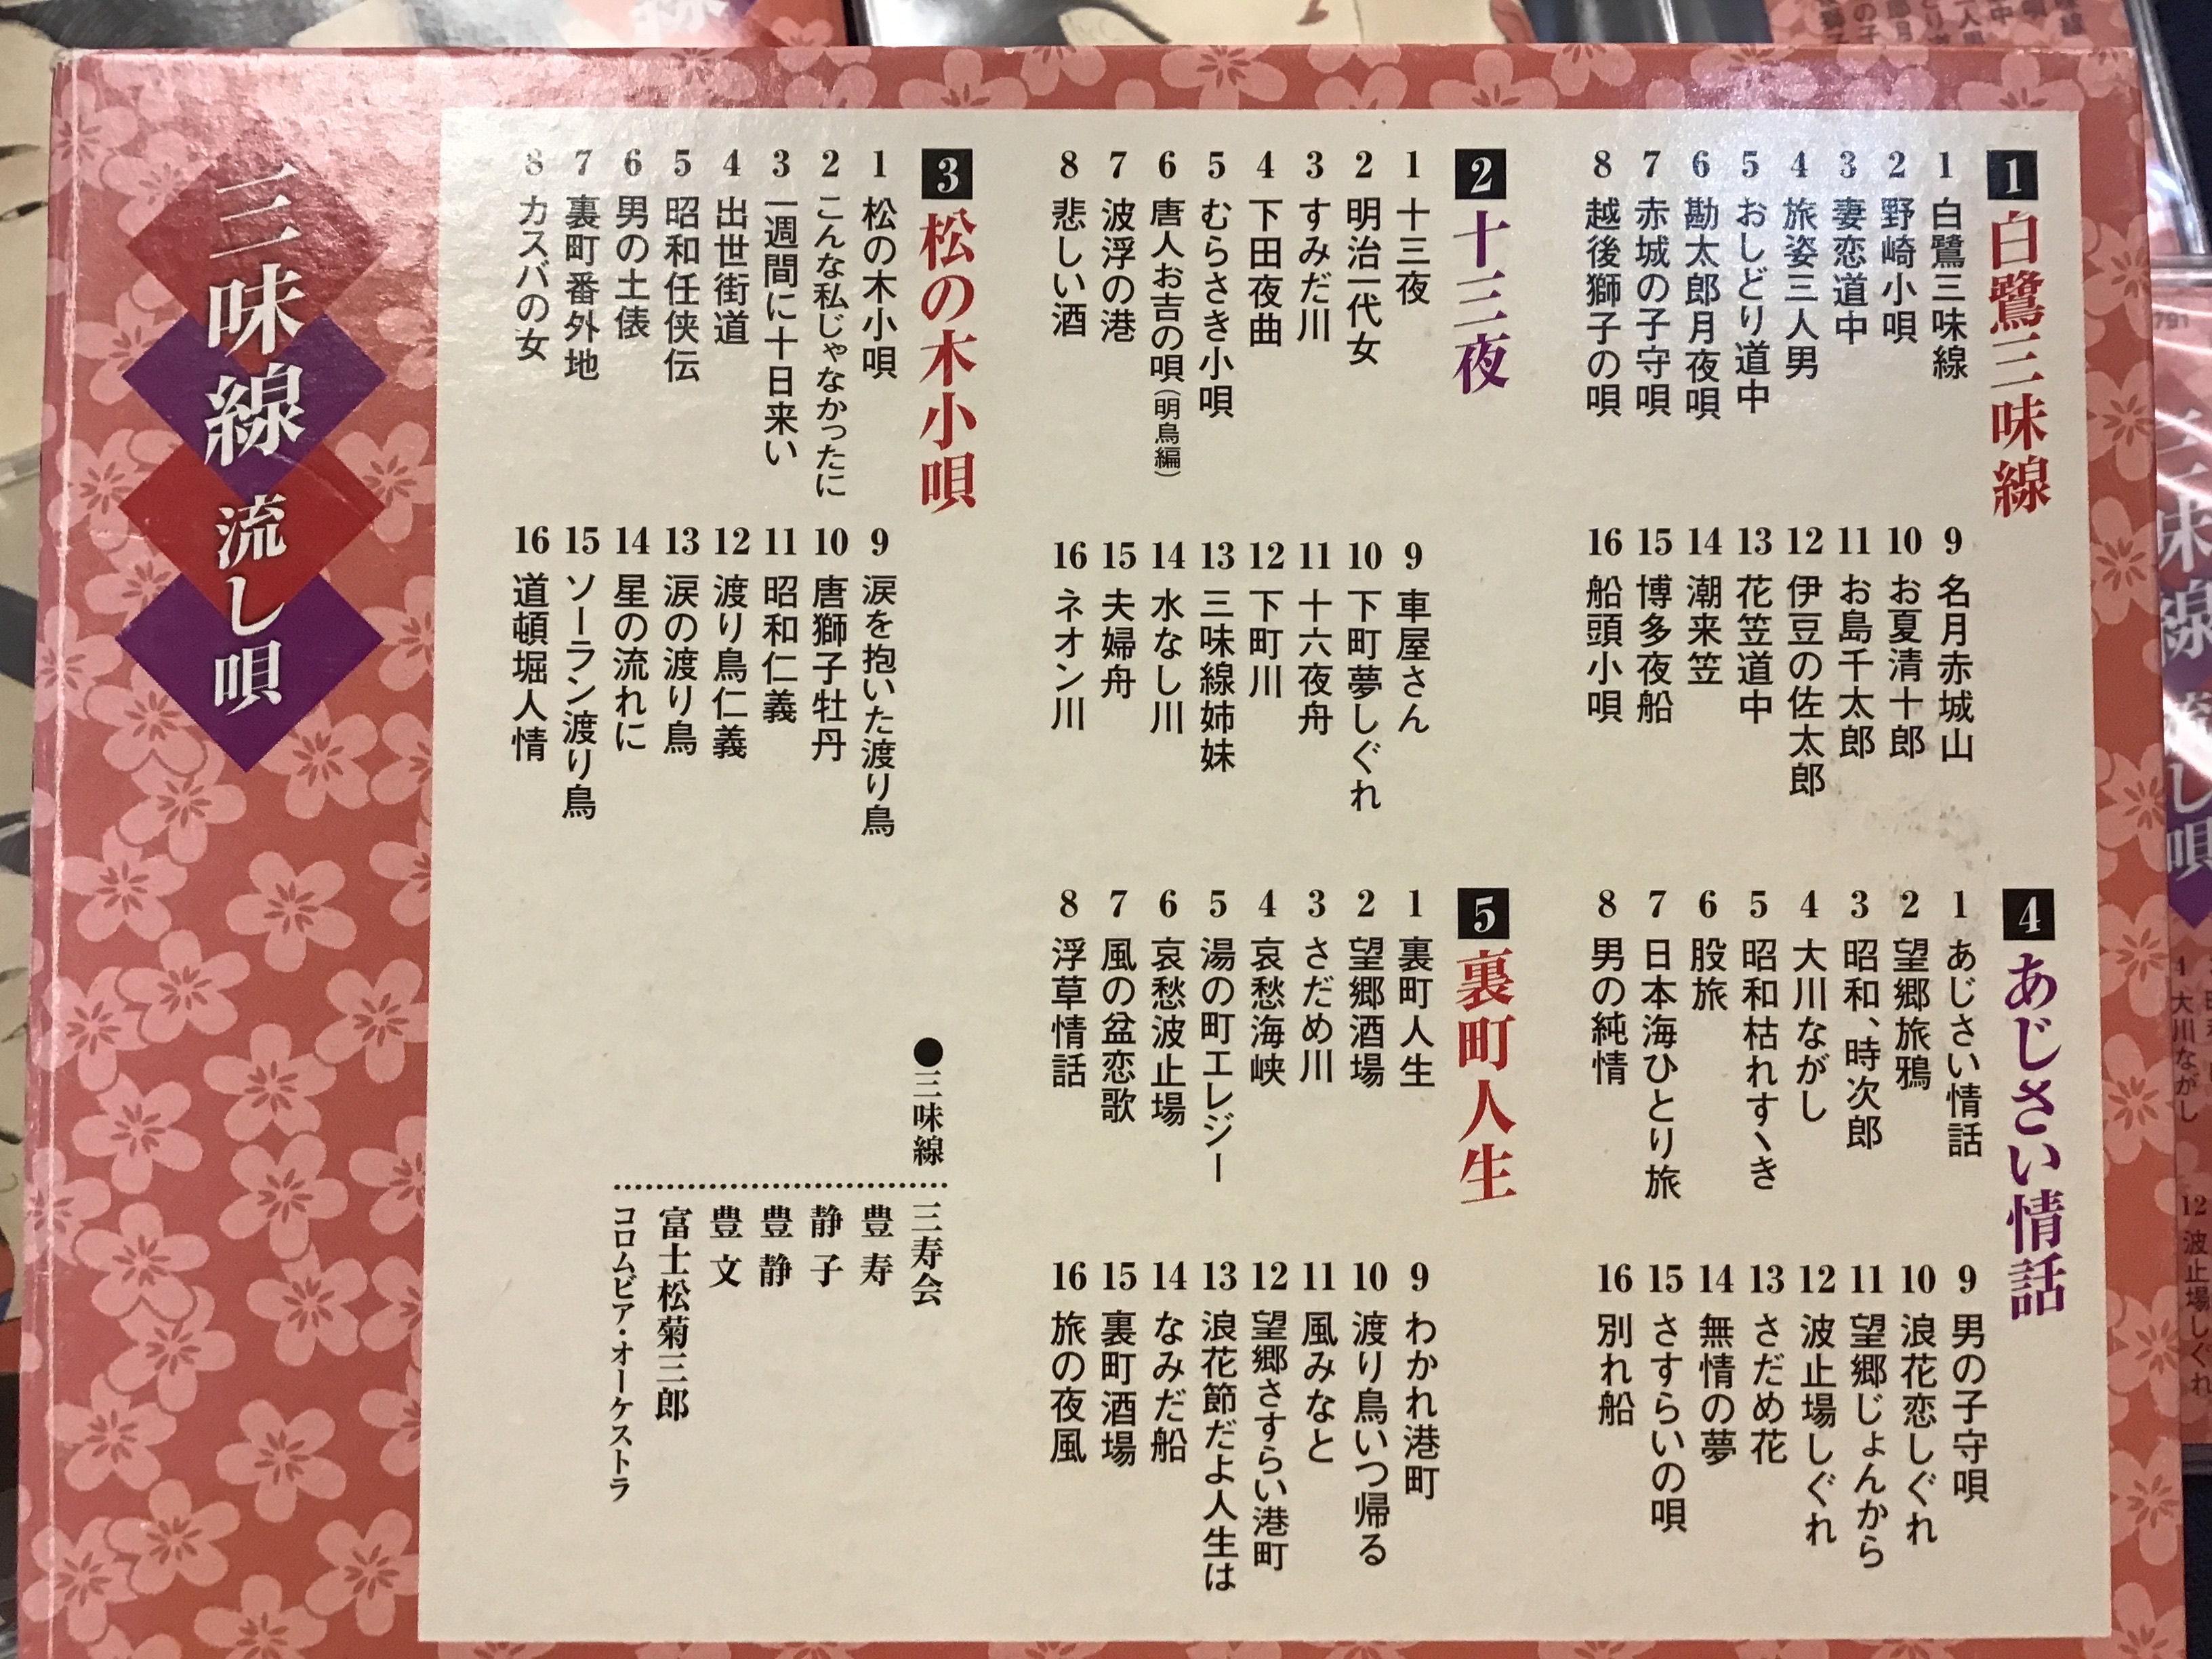 三味線 流し唄
1 白鷺三味線
1 白鷺三味線
2 野崎小唄
3 妻恋道中
4 旅姿三人男
5 おしどり道中
6 勘太郎月夜唄
7 赤城の子守唄
8 越後獅子の唄
9 名月赤城山
10 お夏清十郎
11 お島千太郎
12 伊豆の佐太郎
13 花笠道中
14 潮来笠
15 博多夜船
16 船頭小唄
2 十三夜
1 十三夜
2 明治一代女
3 すみだ川
4 下田夜曲
5 むらさき小唄
6 唐人お吉の唄(明烏編)
7 波浮の港
8 悲しい酒
9 車屋さん
10 下町夢しぐれ
11 十六夜舟
12 下町川
13 三味線姉妹
14 水なし川
15 夫婦舟
16 ネオン川
3 松の木小唄
1 松の木小唄
2 こんな私じゃなかったに
3 一週間に十日来い
4 出世街道
5 昭和任侠伝
6 男の土俵
7 裏町番外地
8 カスバの女
9 涙を抱いた渡り鳥
10 唐獅子牡丹
11 昭和仁義
12 渡り鳥仁義
13 涙の渡り鳥
14 星の流れに
15 ソーラン渡り鳥
16 道頓堀人情
4 あじさい情話
1 あじさい情話
2 望郷旅鴉
3 昭和、時次郎
4 大川ながし
5 昭和枯れすゝき
6 股旅
7 日本海ひとり旅
8 男の純情
9 男の子守唄
10 浪花恋しぐれ
11 望郷じょんから
12 波止場しぐれ
13 さだめ花
14 無情の夢
15 さすらいの唄
16 別れ船
5 裏町人生
1 裏町人生
2 望郷酒場
3 さだめ川
4 哀愁海峡
5 湯の町エレジー
6 哀愁波止場
7 風の盆恋歌
8 浮草情話
9 わかれ港町
10 渡り鳥いつ帰る
11 風みなと
12 望郷さすらい港町
13 浪花節だよ人生は
14 なみだ船
15 裏町酒場
16 旅の夜風
●三味線
三寿会
豊寿
静子
豊静
豊文
富士松菊三郎
コロムビア・オーケストラ
4 大川ながし
12 波止場しぐれ